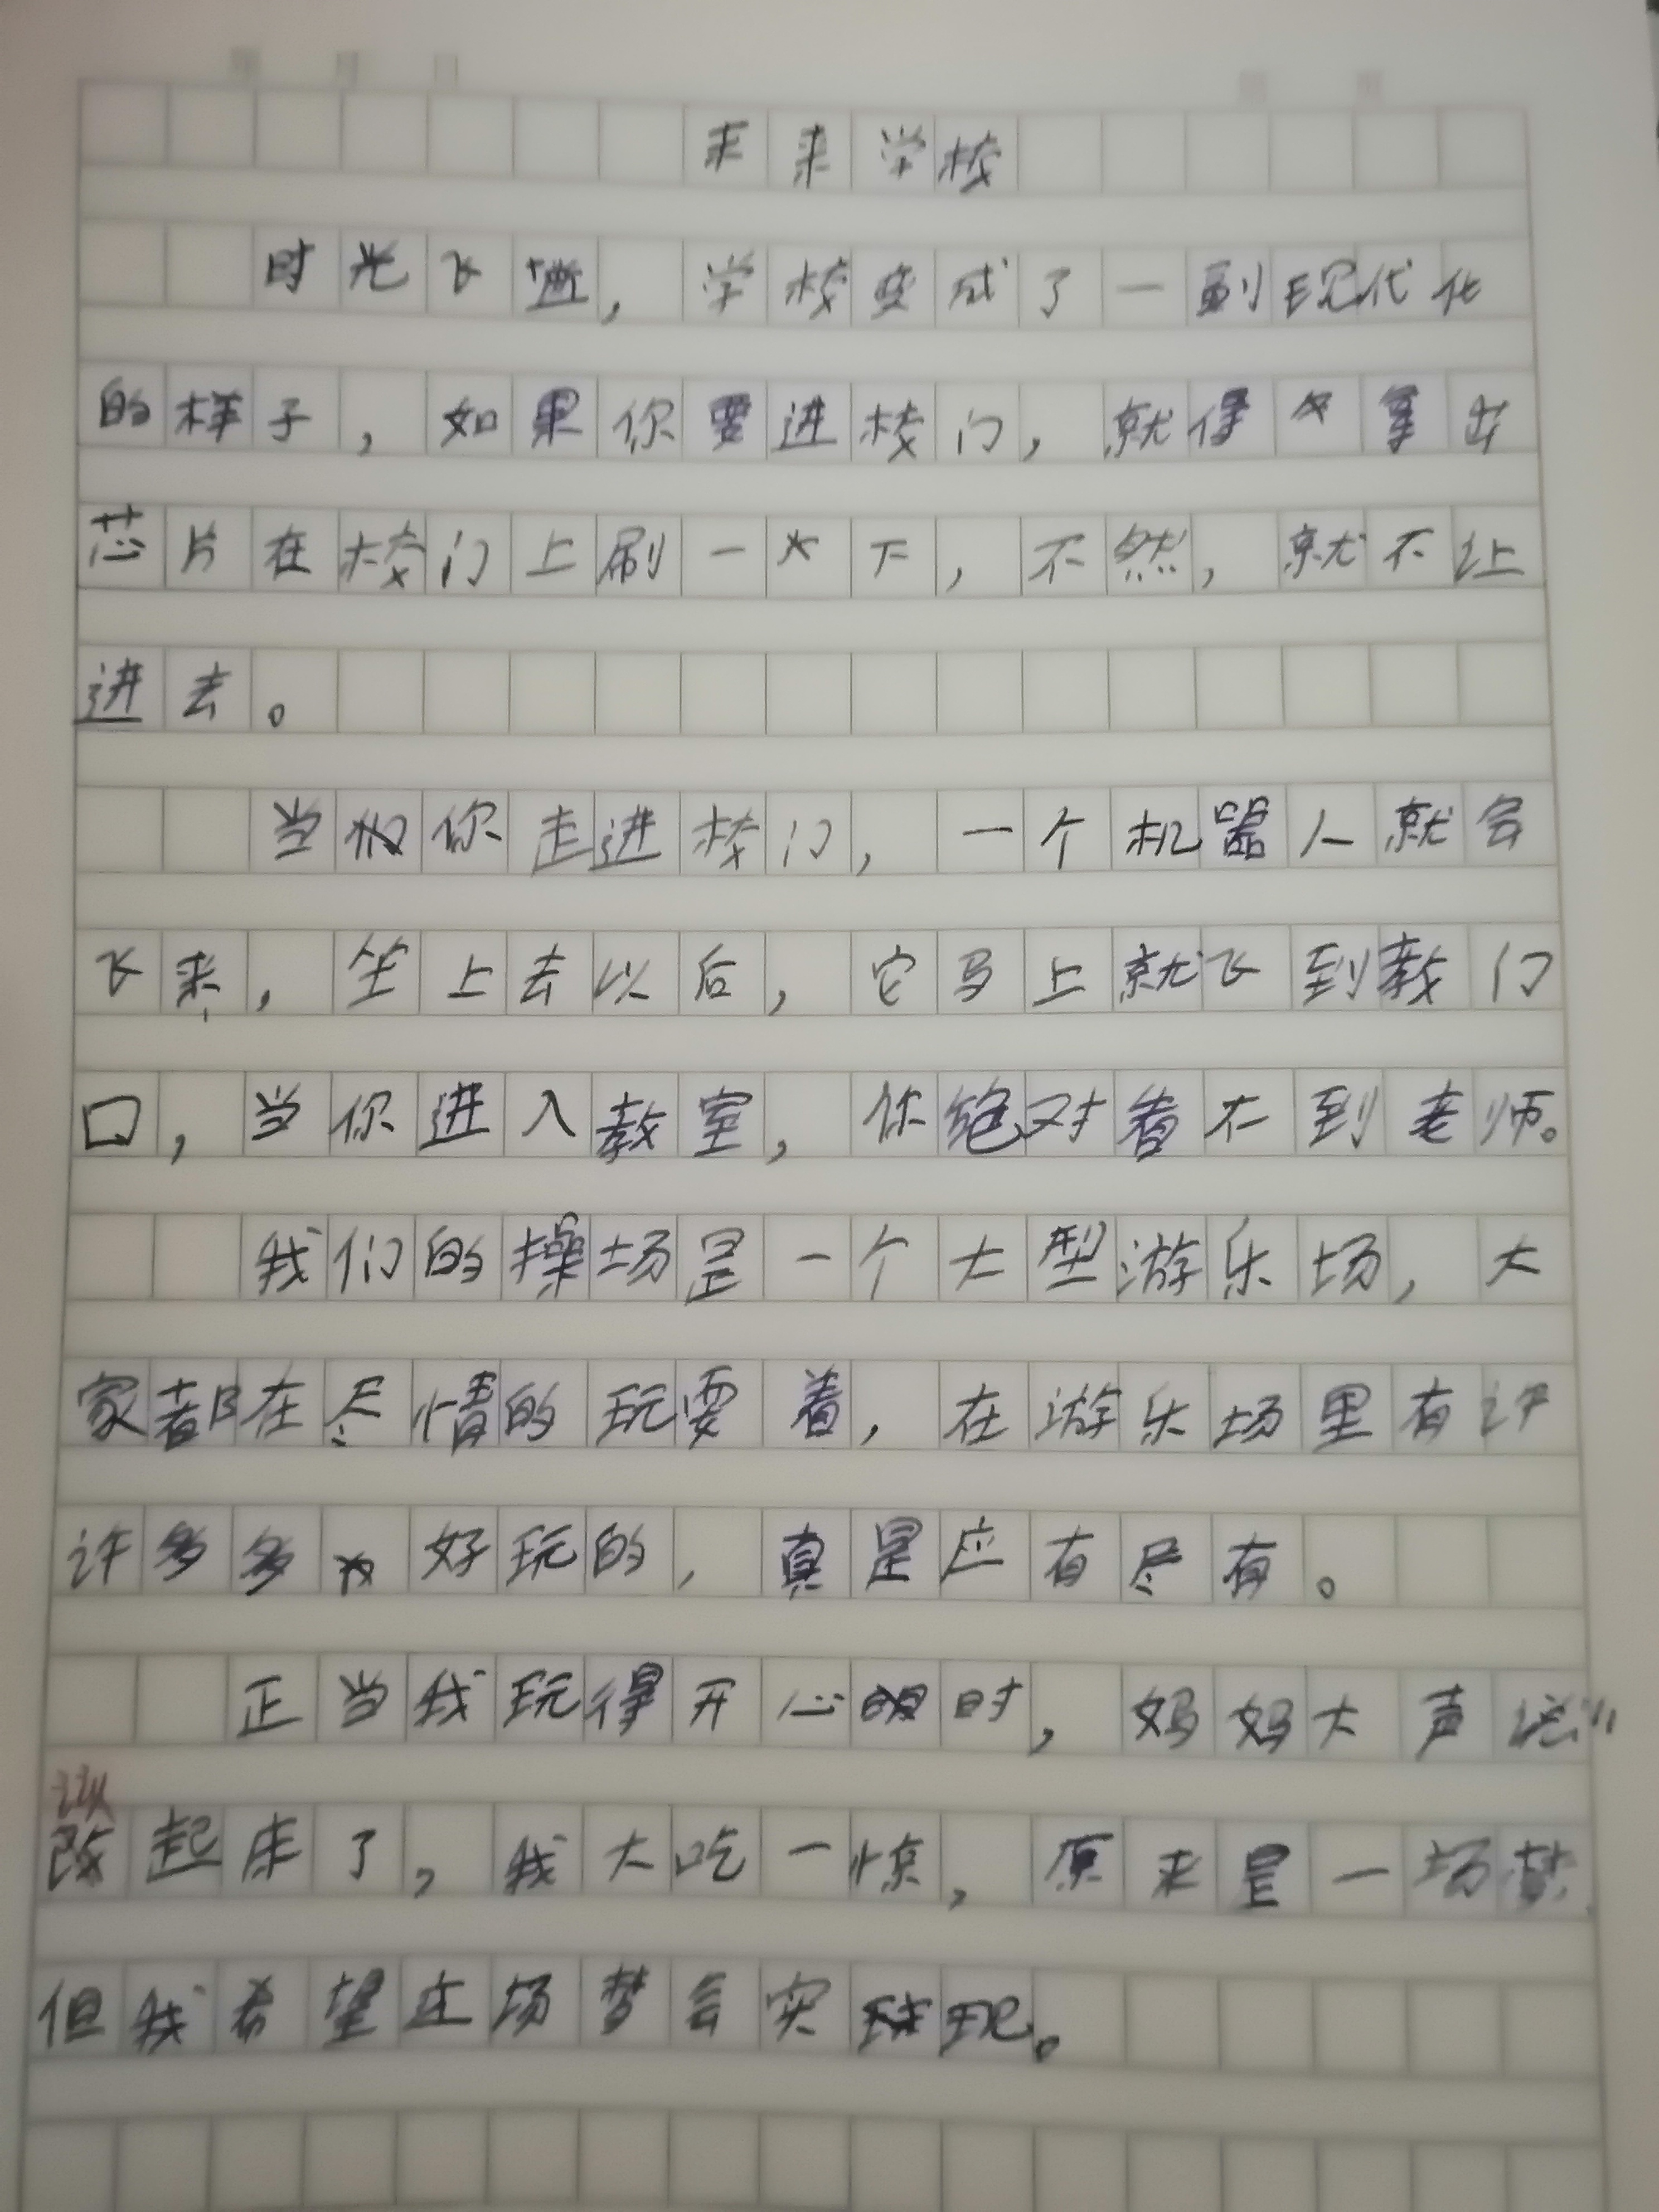 未来学校
时光飞逝，学校变成了一副现代化
的样子，如果你要进校门，就得拿出
芯片在校门上刷一下，不然，就不让
进去。
当你走进校门，一个机器人就会
飞来，坐上去以后，它马上就飞到教门
口，当你进入教室，你绝对看不到老师。
我们的操场是一个大型游乐场，大
家都在尽情的玩耍着，在游乐场里有许
许多多好玩的，真是应有尽有。
正当我玩得开心时，妈妈大声说“
该起床了，我大吃一惊，原来是一场梦，
但我希望这场梦会实现。